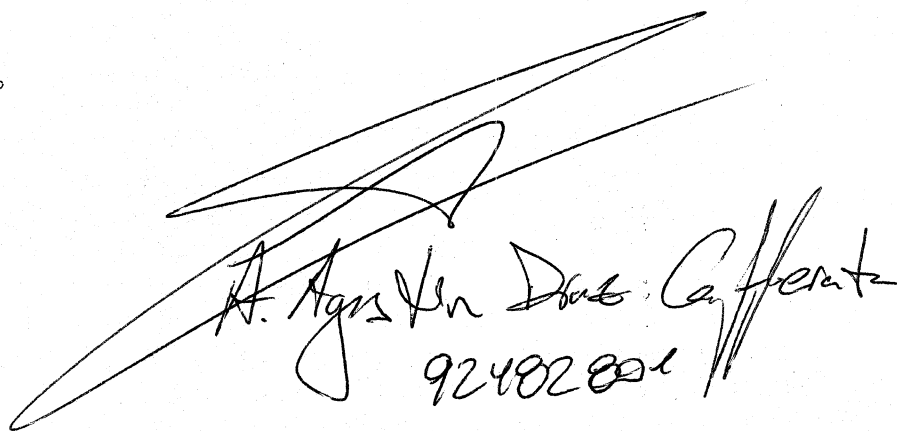 A. Agustin Diaz Cafferata
92482801